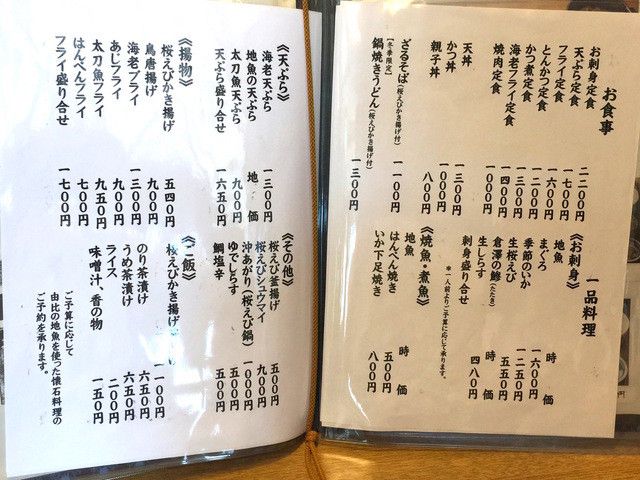 お食事
お刺身定食 二二00円
天ぷら定食 一七00円
フライ定食 一六00円
とんかつ定食 一二00円
かつ煮定食 一三00円
海老フライ定食 一四00円
焼肉定食 一000円
天丼 一三00円
かつ丼 一000円
親子丼 八00円
ざるそば(桜えびかき揚げ付) 一一00円
【冬季限定】
鍋焼きうどん(桜えびかき揚げ付) 一三00円
一品料理
《お刺身》
地魚 時価
まぐろ 一六00円
季節のいか 一二五0円
生桜えび 五五0円
倉澤の鯵(たたき) 時価
生しらす 四八0円
刺身盛り合せ
※一人前よりご予算に応じて承ります。
《焼魚・煮魚》
地魚 時価
はんぺん焼き 五00円
いか下足焼き 八00円
《天ぷら》
海老天ぷら 一三00円
地魚の天ぷら 地価
太刀魚天ぷら 九00円
天ぷら盛り合せ 一六五0円
《揚物》
桜えびかき揚げ 五四0円
鳥唐揚げ 九00円
海老フライ 一三00円
あじフライ 九00円
太刀魚フライ 九五0円
はんぺんフライ 七00円
フライ盛り合せ 一七00円
《その他》
桜えび釜揚げ 五00円
桜えびシュウマイ 九00円
沖あがり(桜えび鍋) 一000円
ゆでしらす 五00円
鯛塩辛 五00円
《ご飯》
桜えびかき揚げ 一一00円
のり茶漬け 六五0円
うめ茶漬け 六五0円
ライス 二00円
味噌汁、香の物 一五0円
ご予算に応じて
由比の地魚を使った懐石料理の
ご予約を承ります。